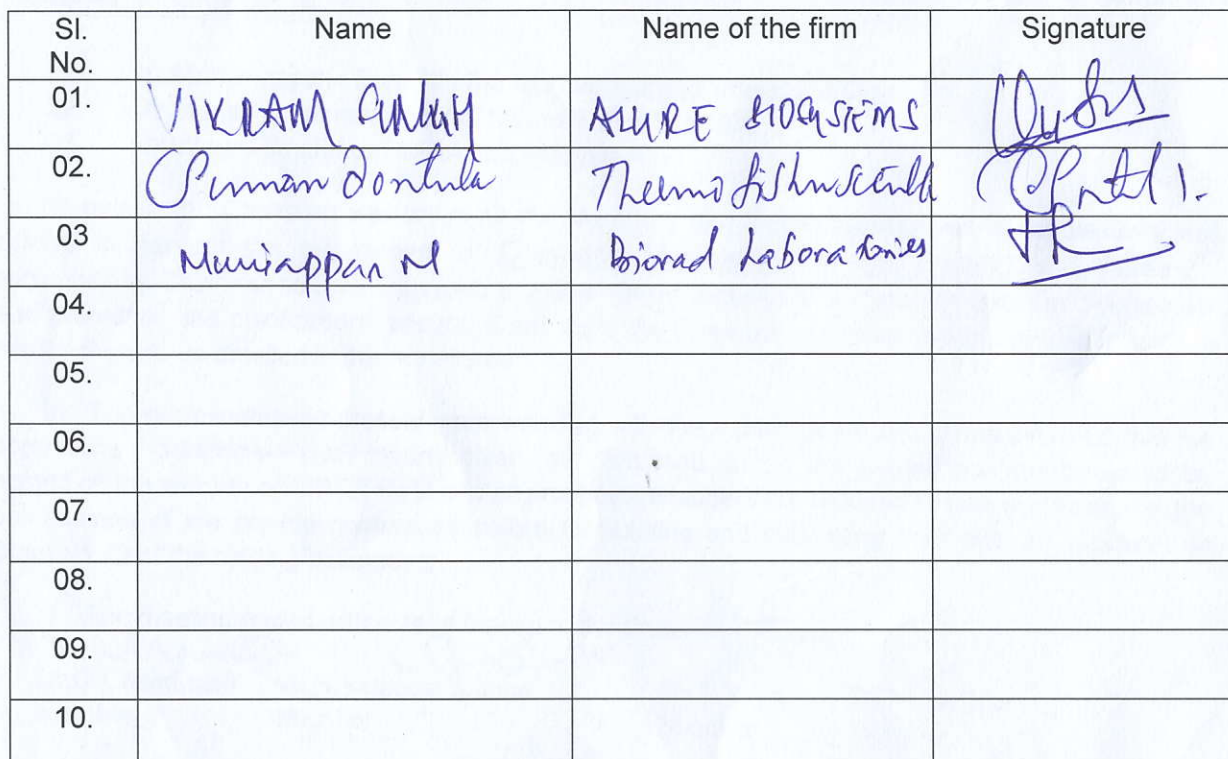 Sl. No. Name Name of the firm Signature
01. VIKRAM SINGH AZURE BIOSYSTEMS
02. Suman Dontula Thermo fisher
03 Muniappan M Biorad Laboratories
04.
05.
06.
07.
08.
09.
10.